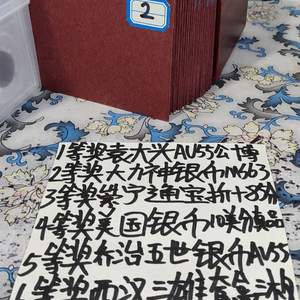 2
1等奖袁大头AU55公博
2等奖大力神银币MS63
3等奖崇宁通宝折十85分
4等奖美国银币10美分真品
5等奖乔治五世银币AU55
6等奖西汉三雄